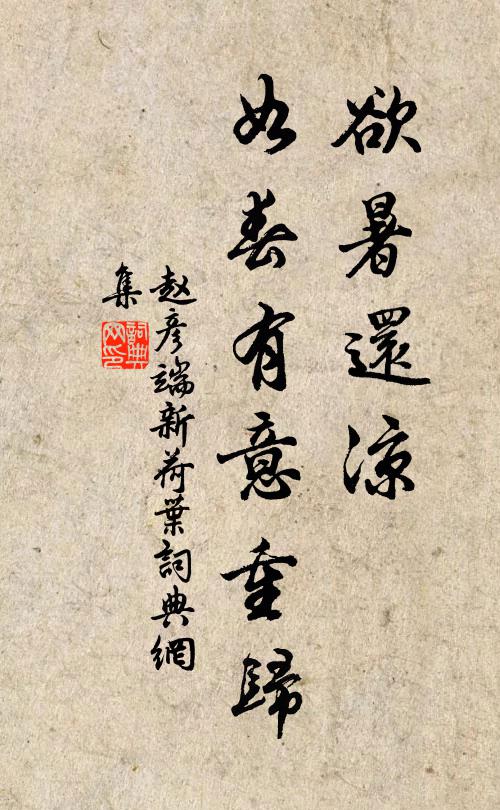 欲暑還涼
如春有意重歸
赵彦端新荷葉詞典網
集
詞典
网印